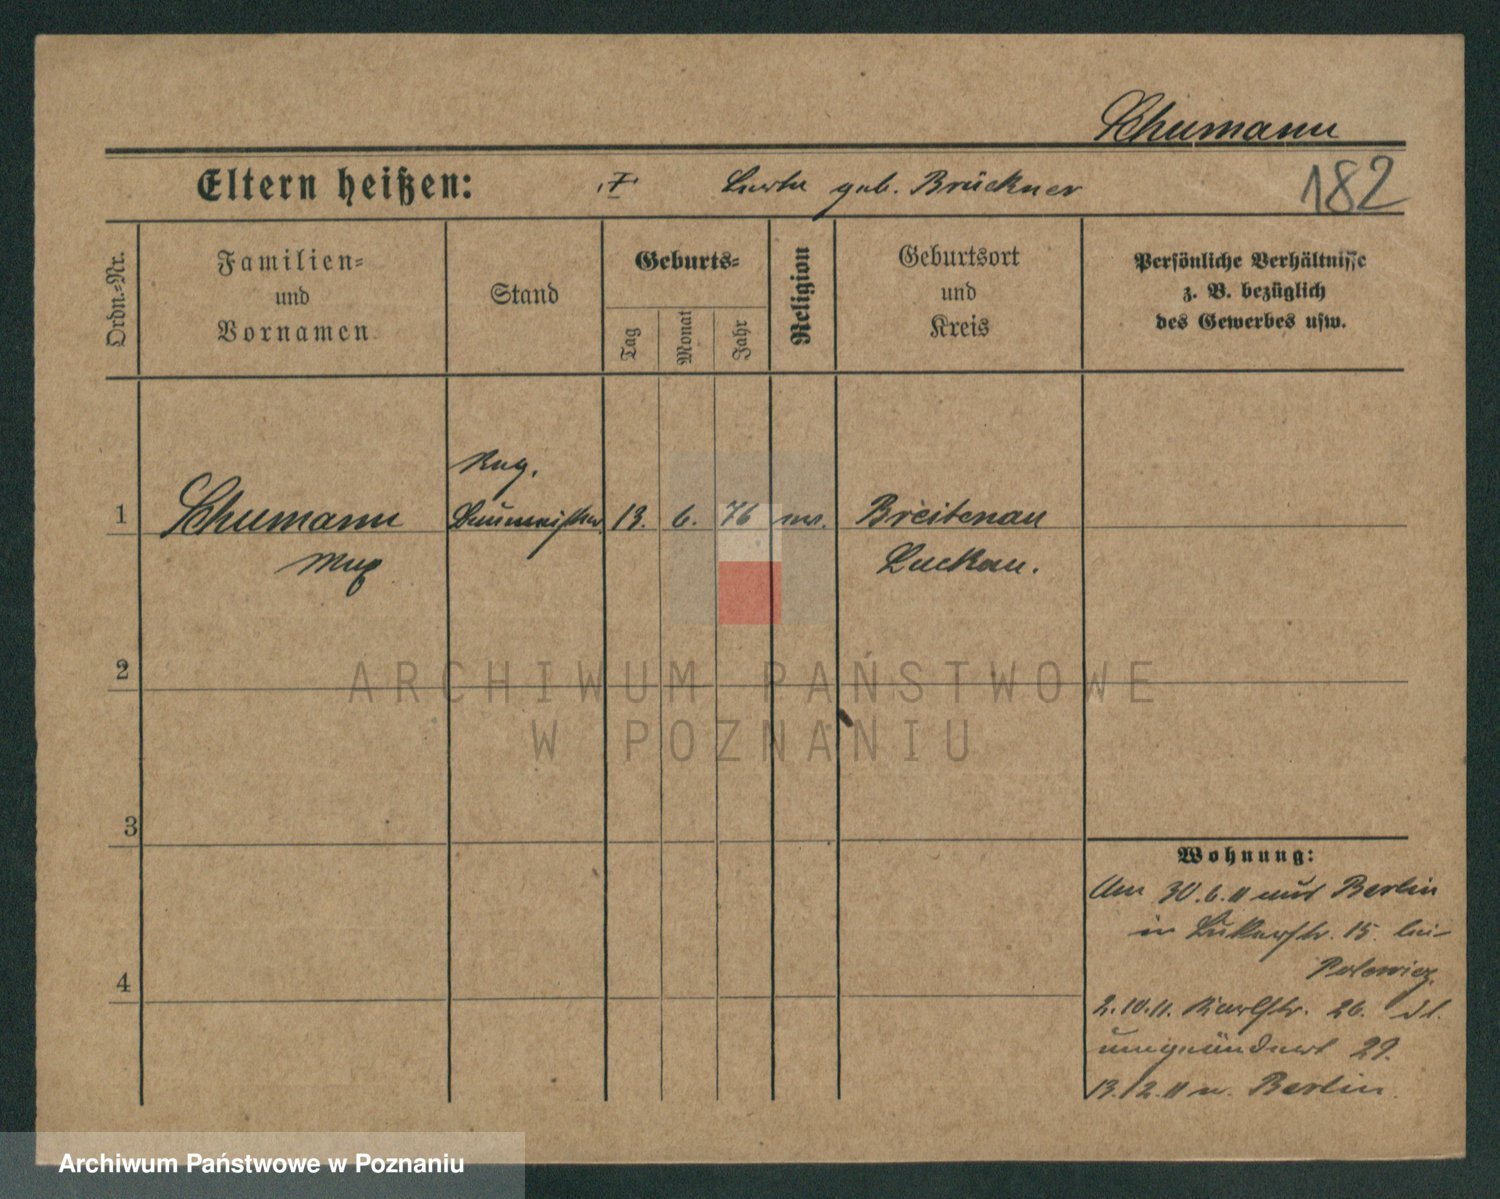 Schumann
Eltern heißen: geb. Brückner 182
Ordn.-Nr.
Familien-
und
Vornamen
Stand
Geburts-
Tag
Monat
Jahr
Religion
Geburtsort
und
Kreis
Persönliche Verhältnisse
z. B. bezüglich
des Gewerbes usw.
Reg.
1 Schumann Baumeister 13. 6. 76 Breitenau
Max Luckau.
2
3
4
Wohnung:
Am 30.6.11 aus Berlin
in 15. bei
2.10.11. Karlstr. 26. ist
umgeändert 29.
13.12.11 n. Berlin.
ARCHIWUM PAŃSTWOWE
W POZNANIU
Archiwum Państwowe w Poznaniu